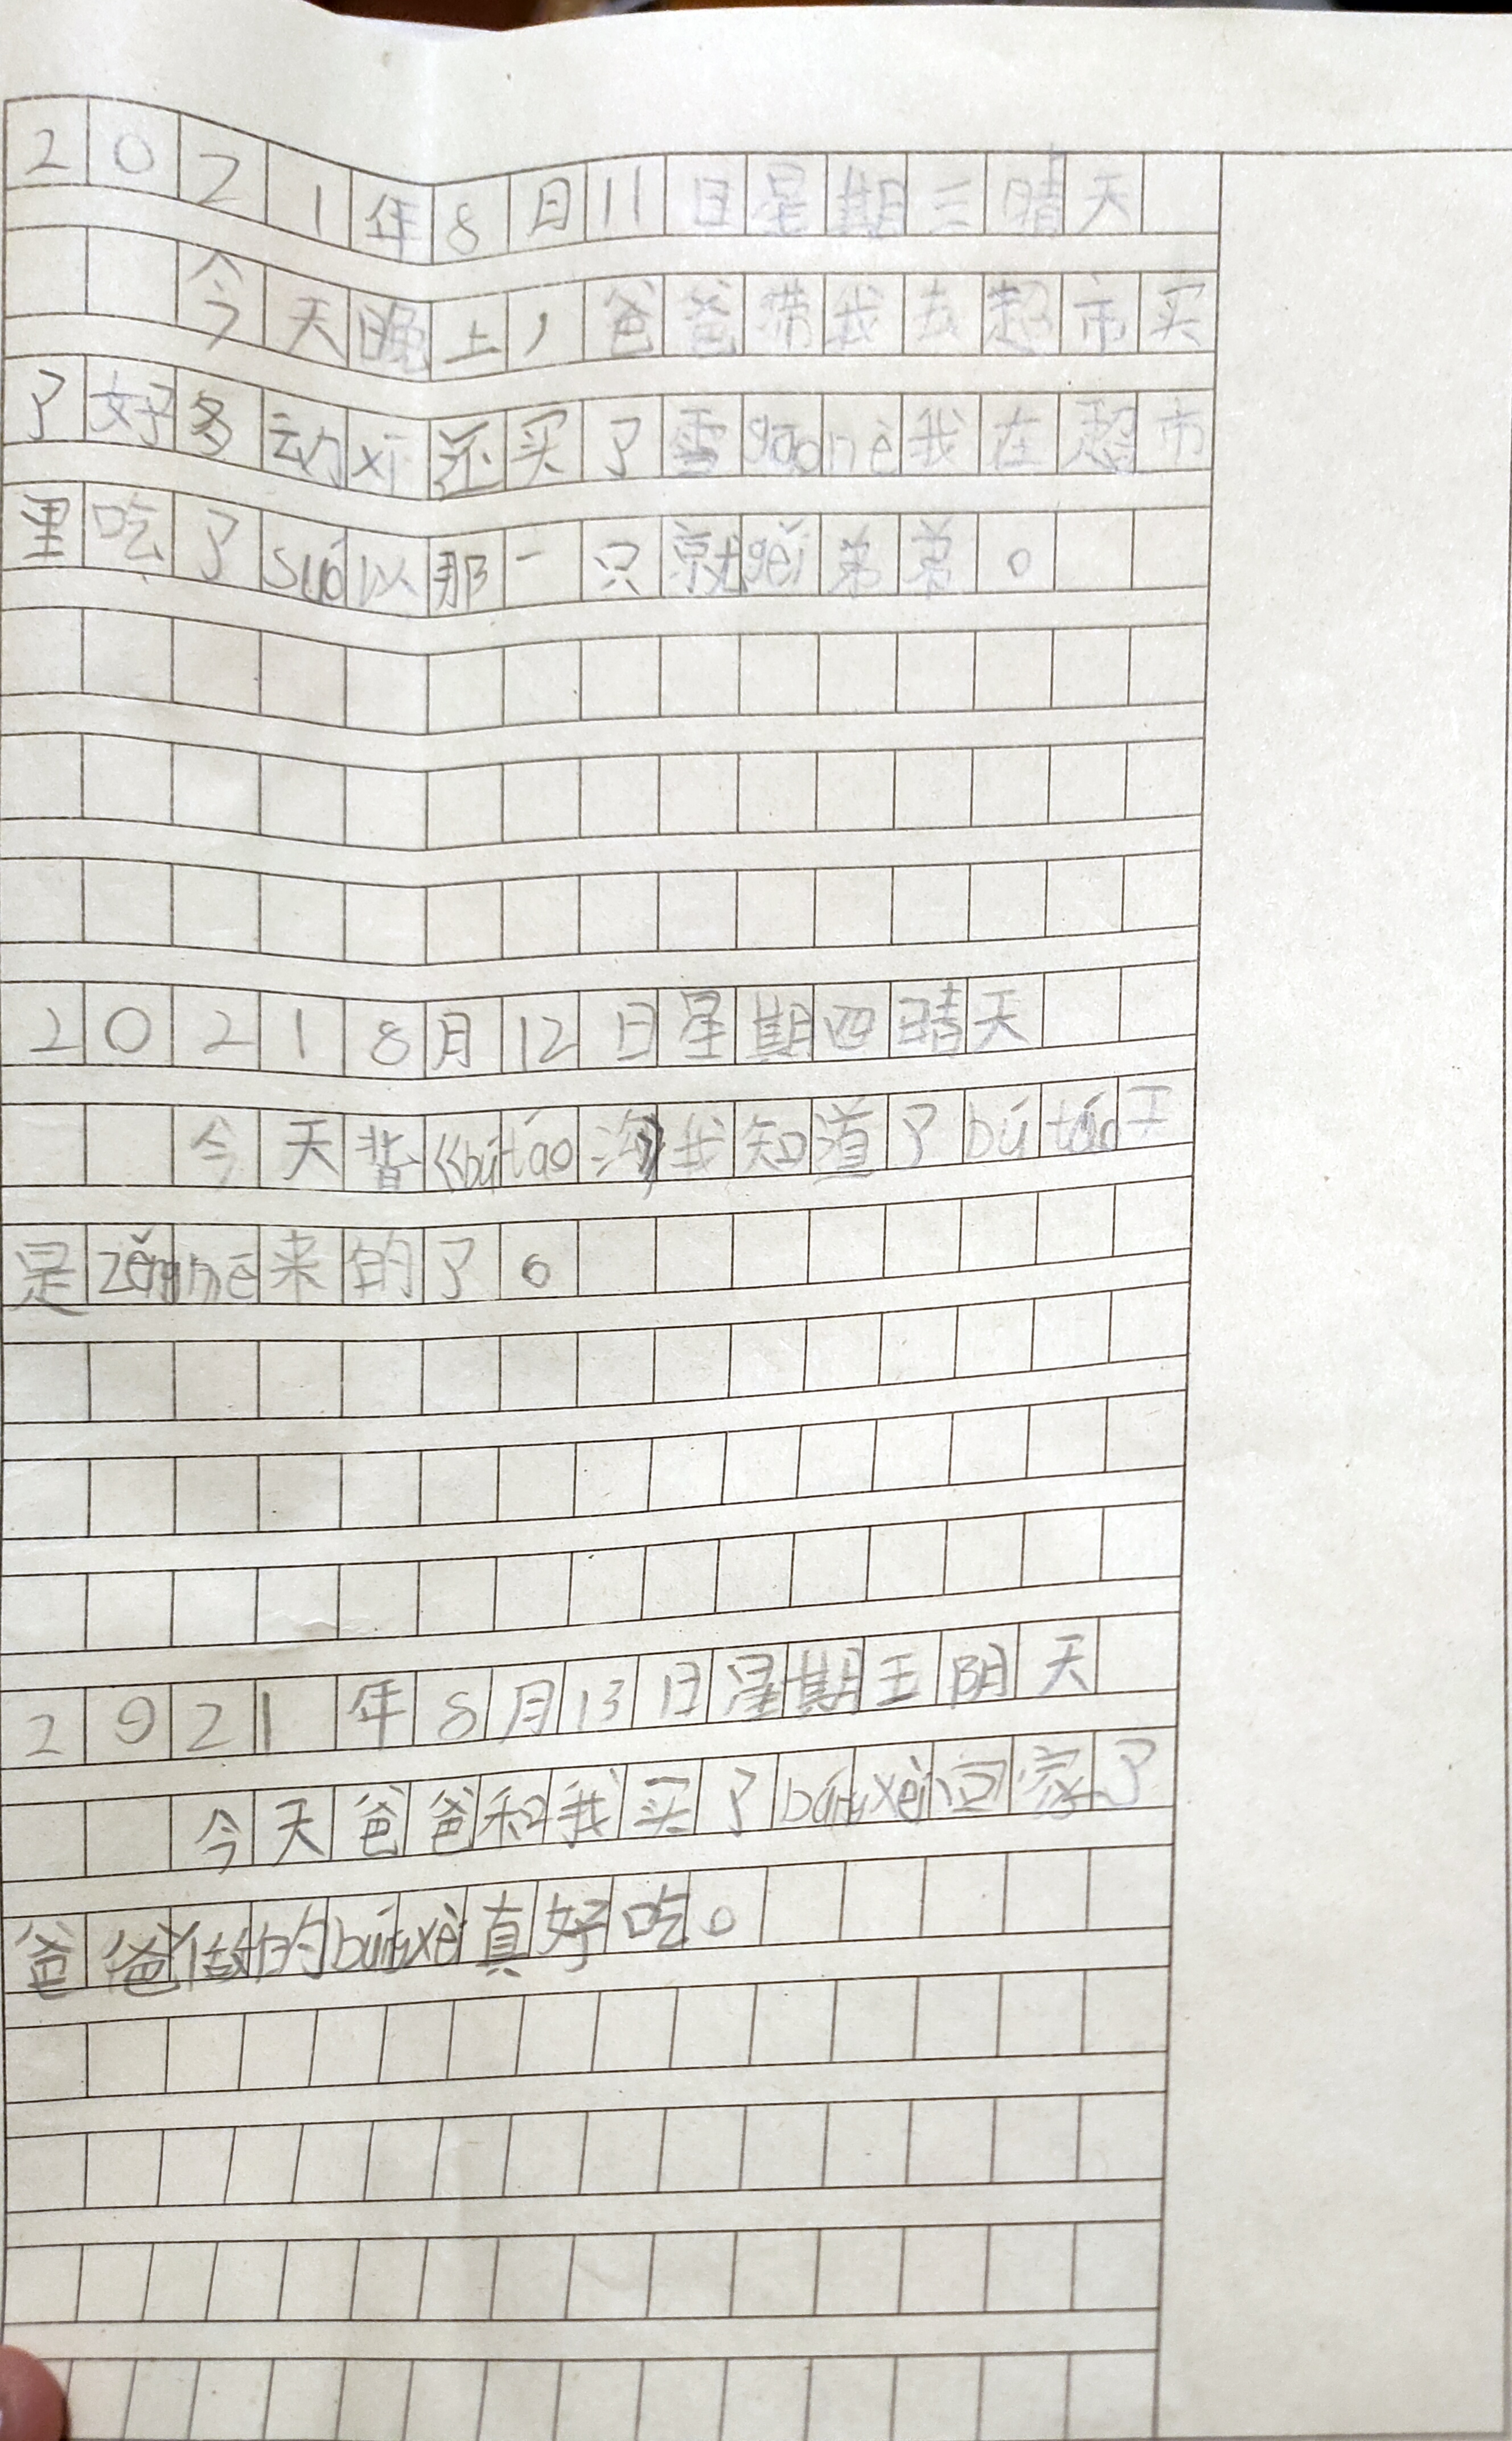 2021年8日11日星期三晴天
今天晚上，爸爸带我去超市买
了好多动xi还买了雪gaone我在超市
里吃了suó以那一只就gěi弟弟。
20218月12日星期四晴天
今天背《bútáo沟》我知道了bútáo干
是zěnme来的了。
2021年8月13日星期五阴天
今天爸爸和我买了bánxèi回家了
爸爸做的bánxèi真好吃。